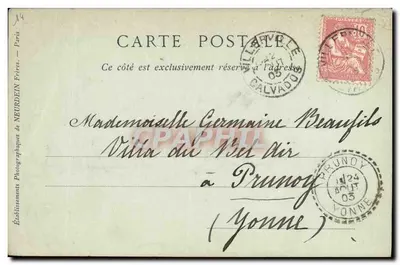 14
CARTE POSTALE
Ce côté est exclusivement réservé à l'adresse
VILLERVILLE
03
CALVADOS
Mademoiselle Germaine Beaufils
Villa du Bel Air
à Prunoy
(Yonne)
PRUNOY
24
AOUT
03
YONNE
Etablissements Photographiques de NEURDEIN Frères. — Paris
CPhoto